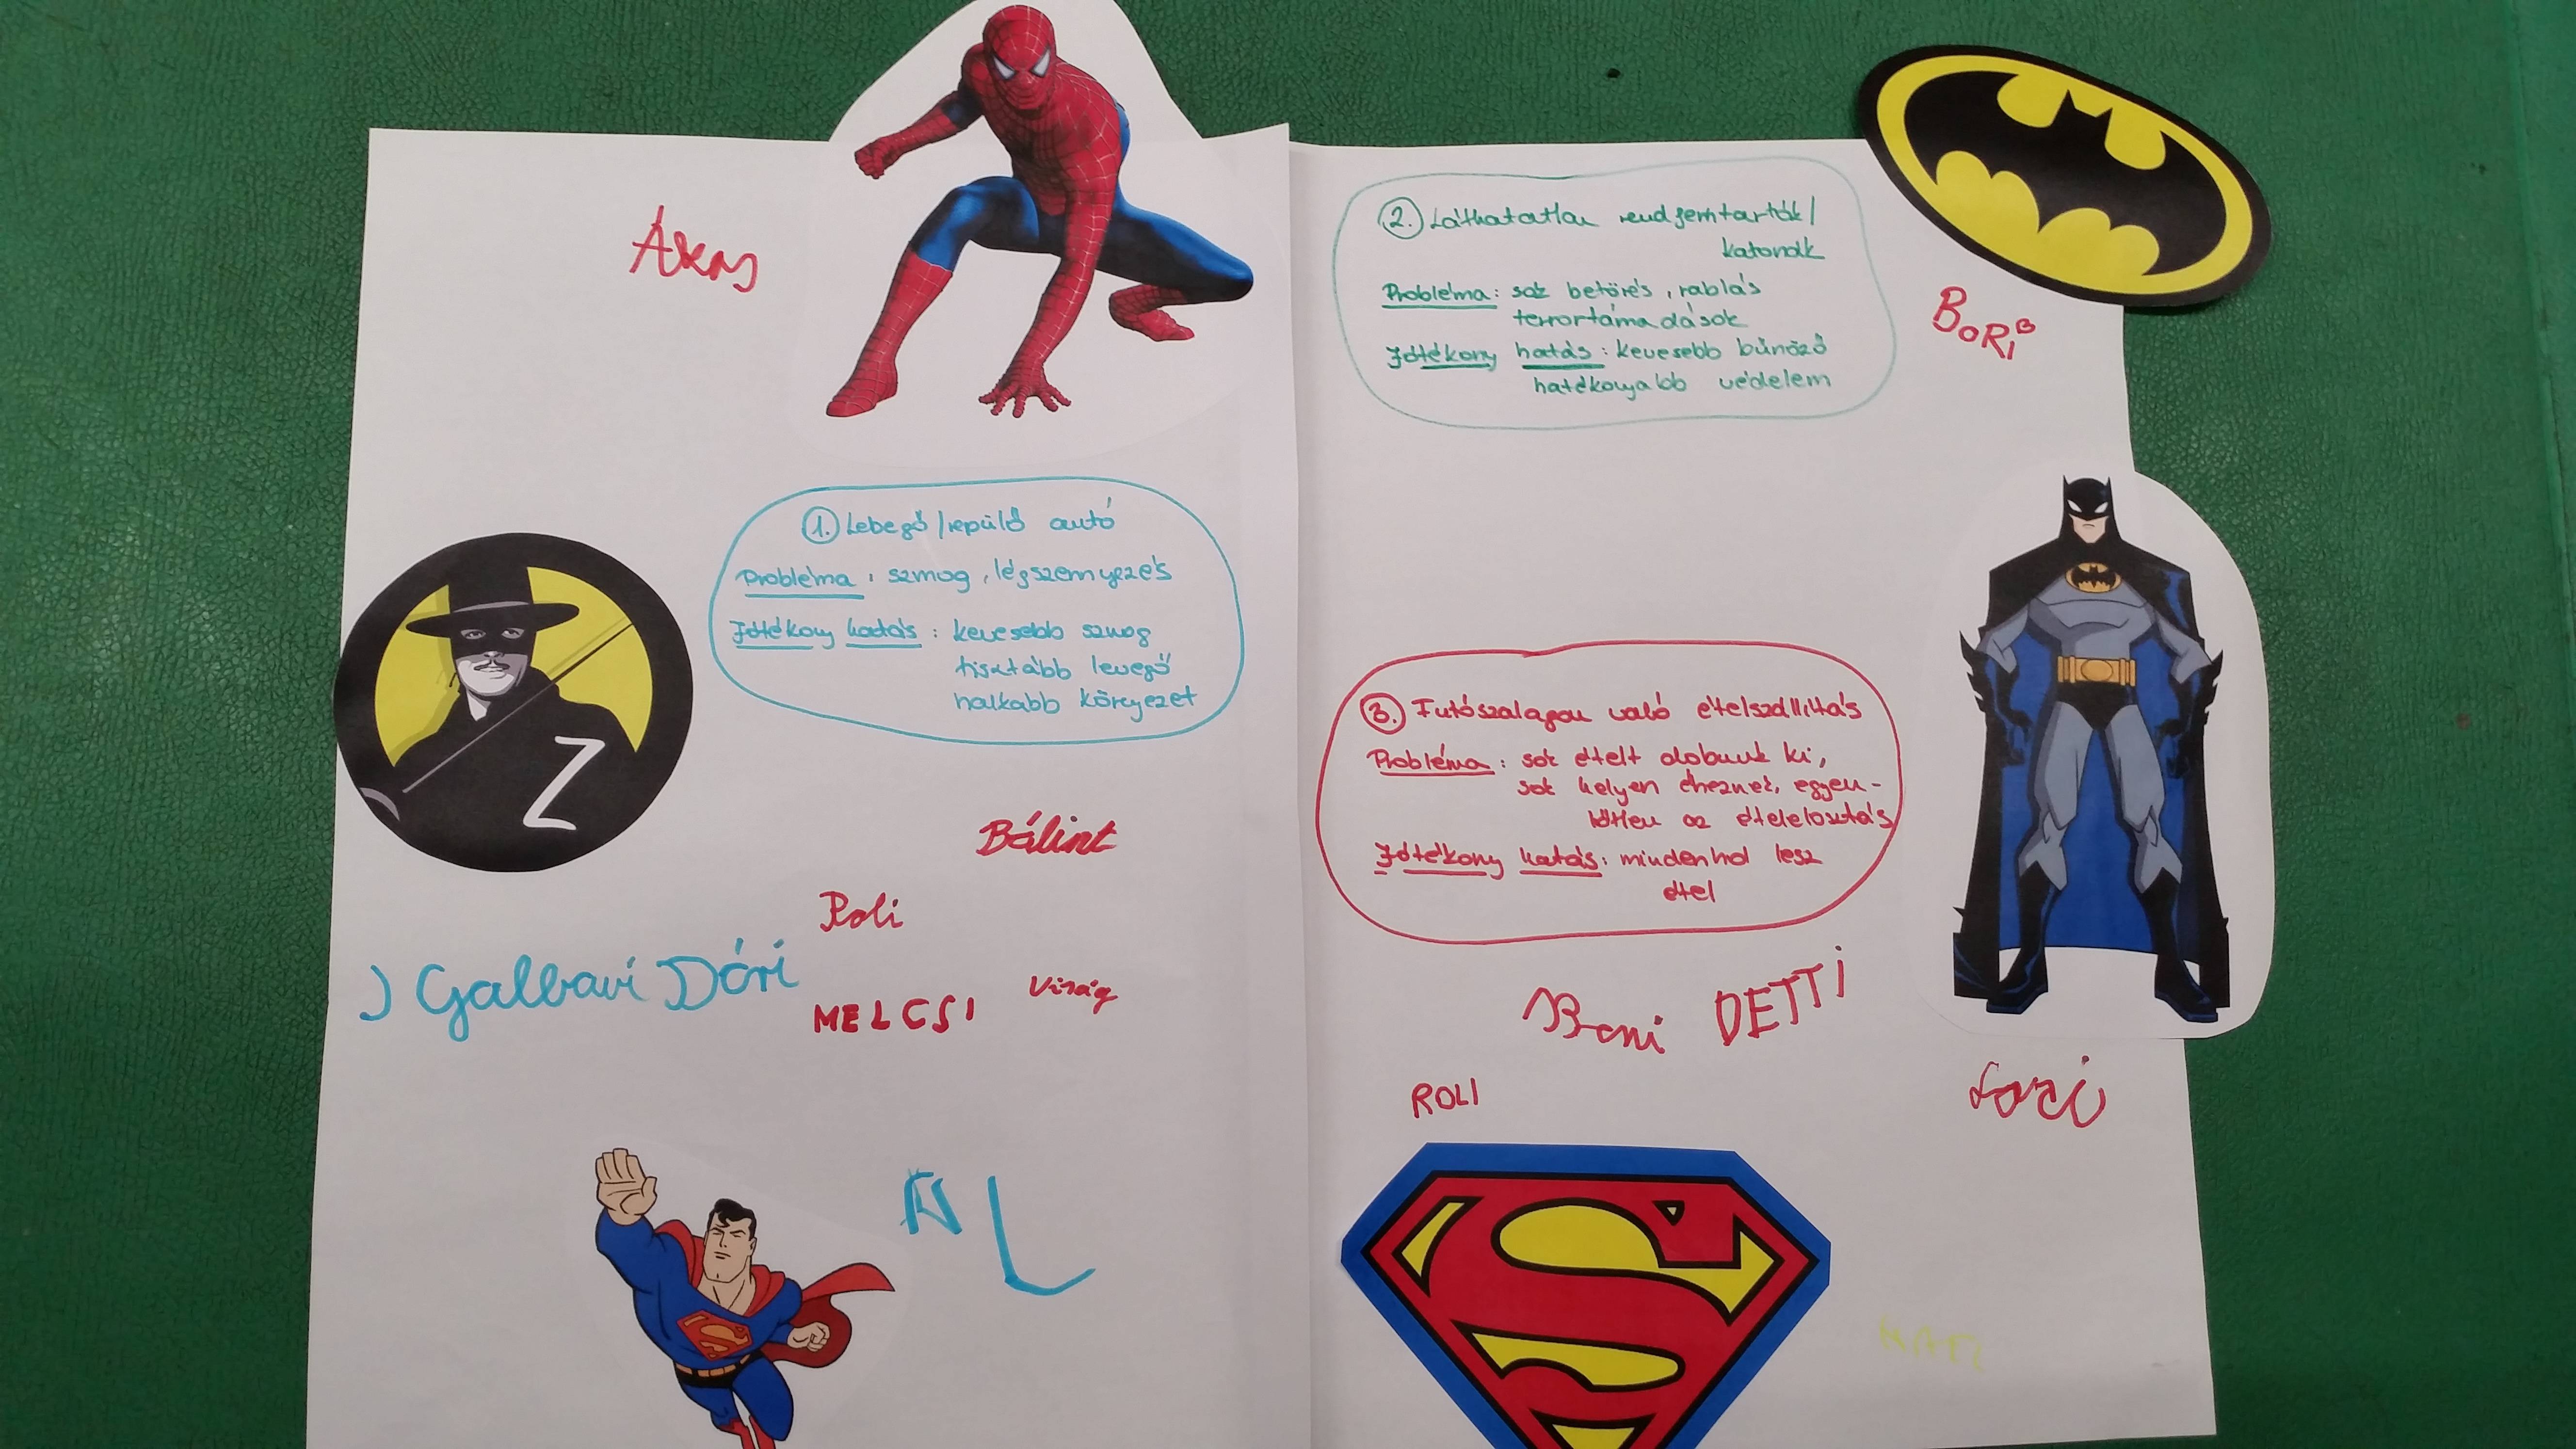 Ákos
1. Lebegő/repülő autó
Probléma: szmog, légszennyezés
Jótékony hatás: kevesebb szmog
tisztább levegő
halkabb környezet
Z
Bálint
Roli
Galbavi Dóri
MELCSI
Virág
2. Láthatatlan rendfenntartók/
katonák
Probléma: sok betörés, rablás
terrortámadások
Jótékony hatás: kevesebb bűnöző
hatékonyabb védelem
BORI B
3. Futószalagon való ételszállítás
Probléma: sok ételt dobunk ki,
sok helyen éheznek, egyen-
lőtlen az ételelosztás
Jótékony hatás: mindenhol lesz
étel
Beni
DETTI
ROLI
S
MATI